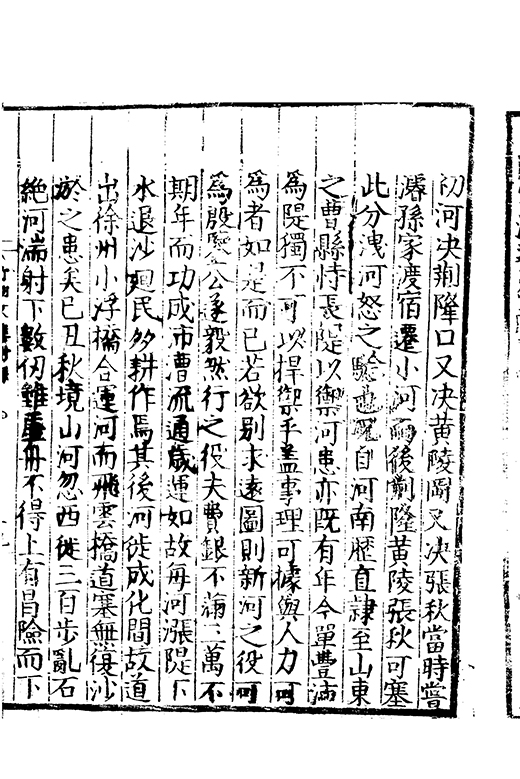 初河决荆隆口又决黄陵岡又决張秋當時嘗
濬孫家渡宿遷小河而後荆隆黄陵張秋可塞
此分洩河怒之驗也況自河南歷直隸至山東
之曹縣恃長隄以禦河患亦既有年今單豐沛
為隄獨不可以捍禦乎盖事理可據與人力可
為者如是而已若欲别求遠圖則新河之役可
為殷鑒公遂毅然行之役夫費銀不滿三萬不
期年而功成市漕流通歲運如故每河漲隄下
水退沙廻民多耕作焉其後河徙成化間故道
出徐州小浮橋合運河而飛雲橋道塞無復沙
淤之患矣己丑秋境山河忽西徙三百步亂石
絶河湍射下數仞雖畫舟不得上有冒險而下